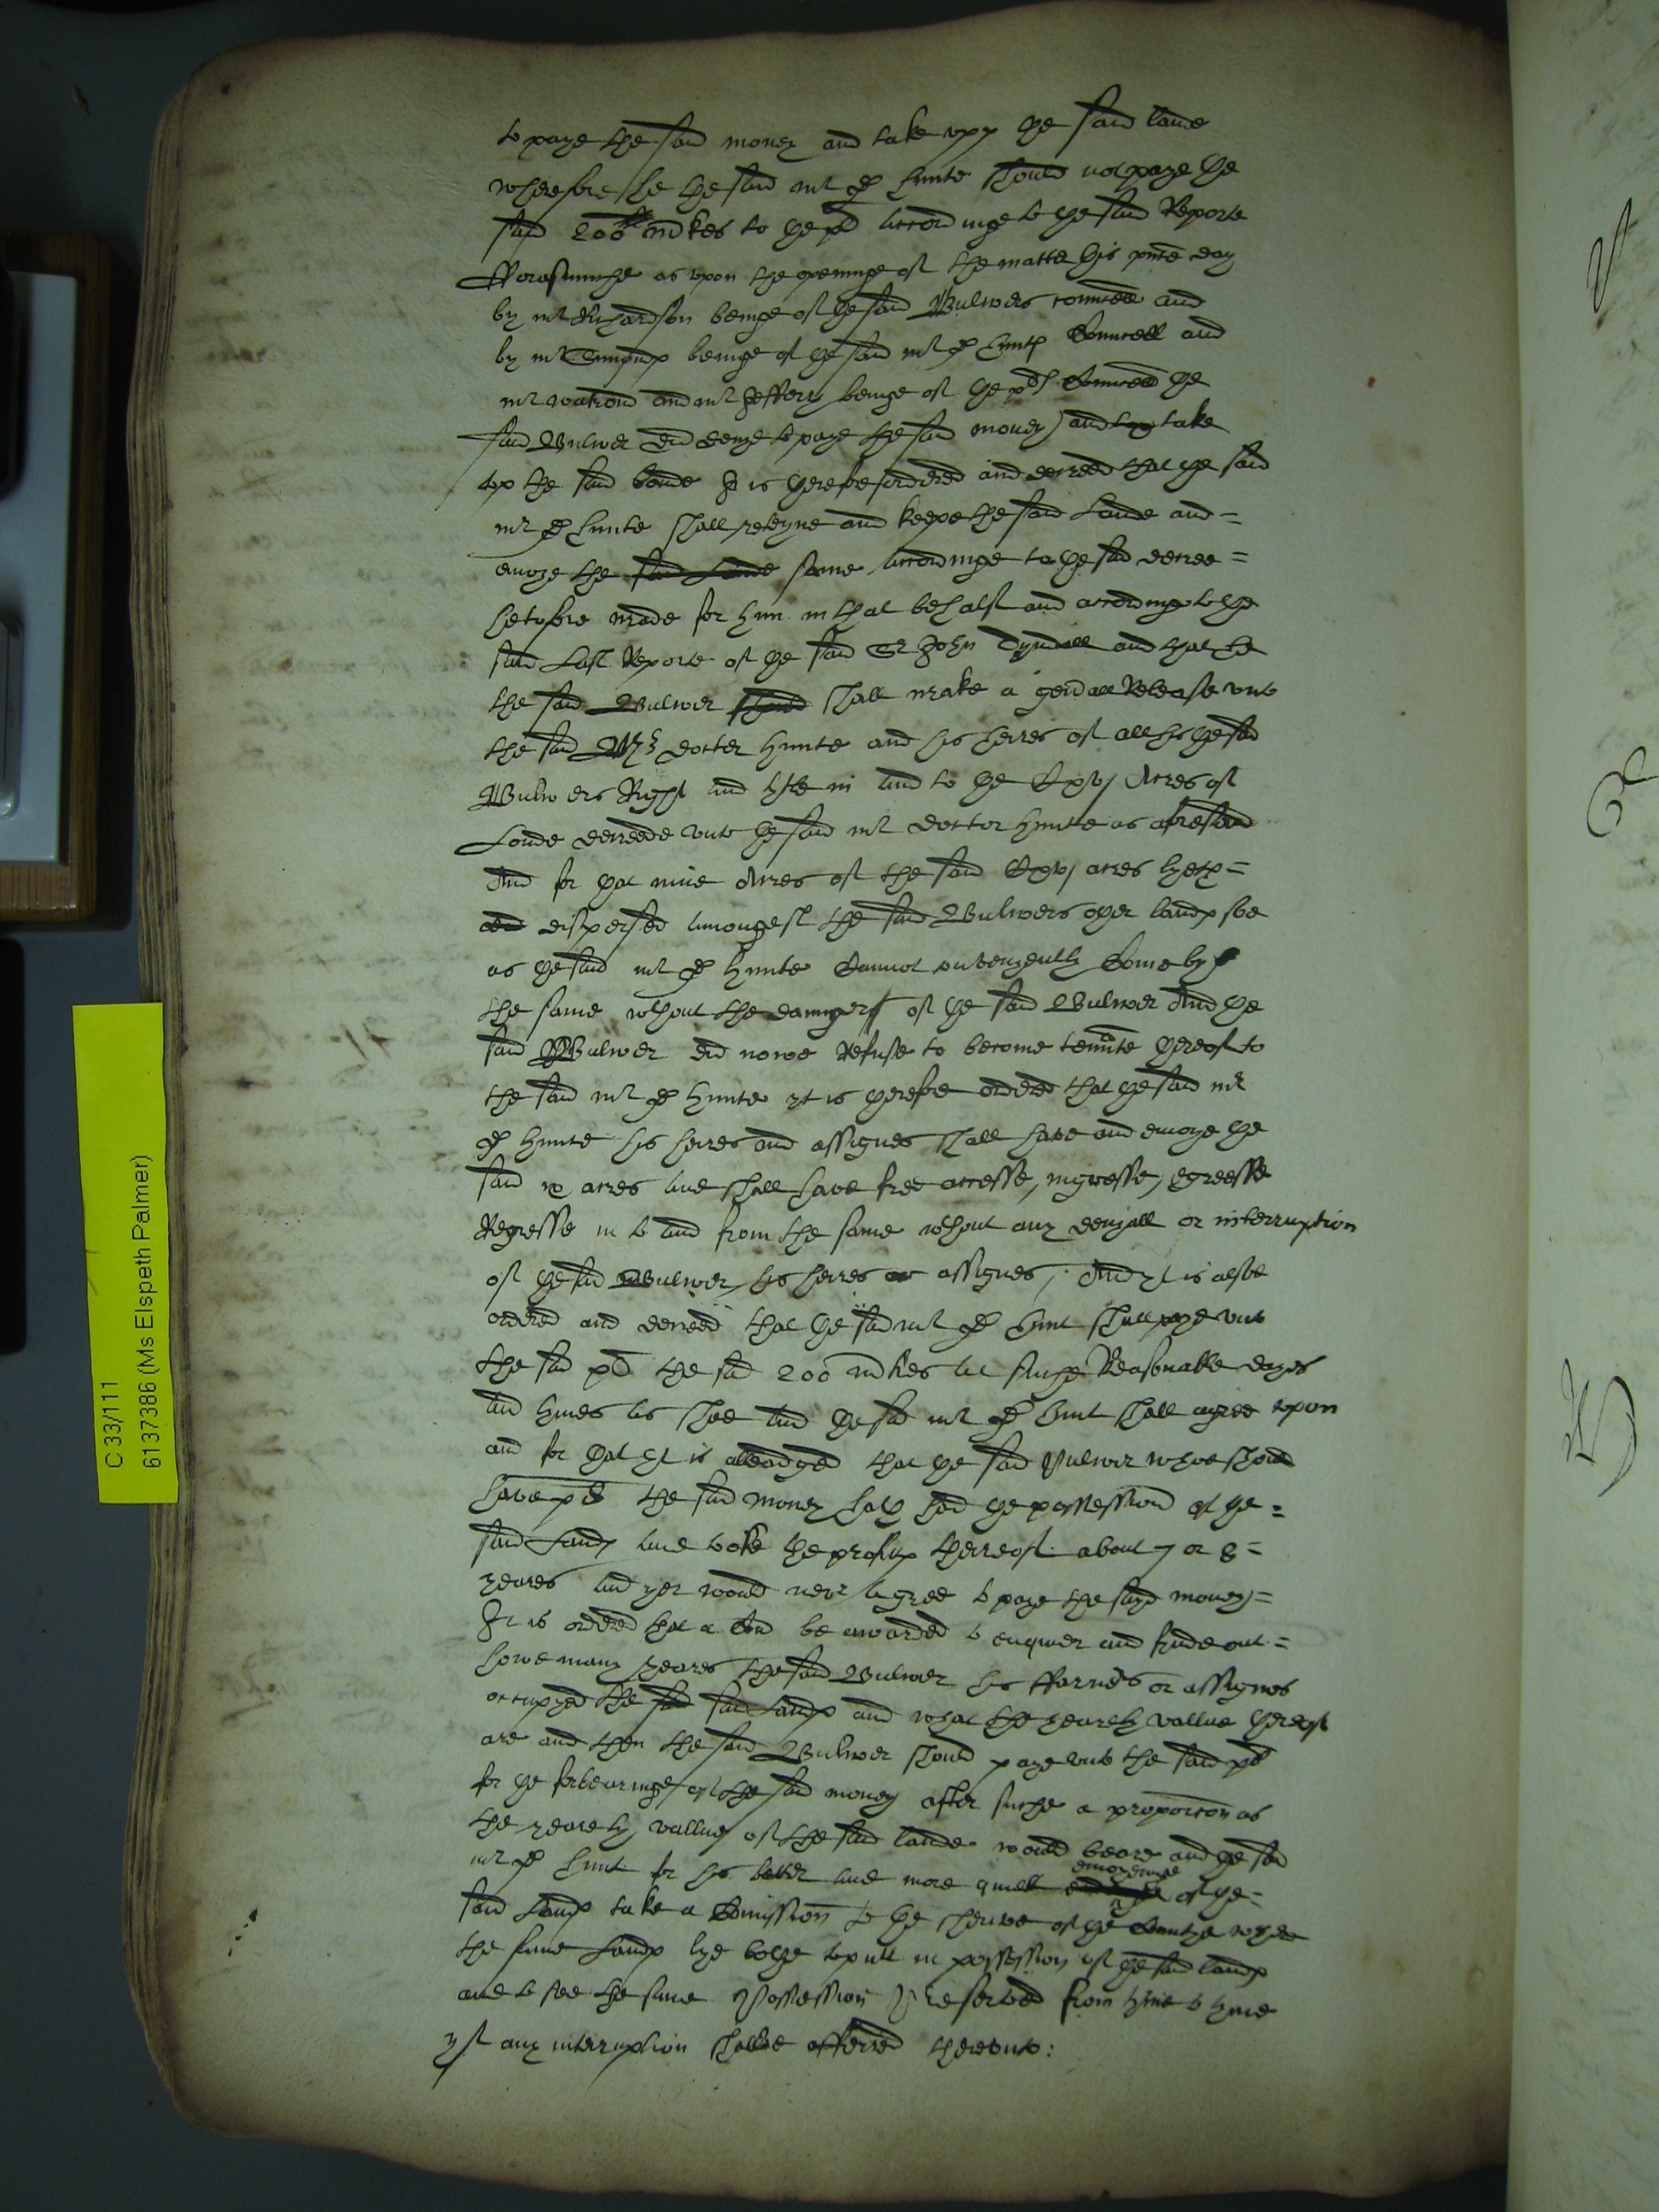 to paye the said money and take upp the said lande
wherefore he the said mr D Hunte should not paye the
said 200 mrkes to the pl accordinge to the said Reporte
fforasmuche as upon the openinge of the matter this pnte day
by mr Richardson beinge of the said Bulwers councell and
by mr beinge of the said mr D Hunts Councell and
mr and mr Jeffery beinge of the pl Councell the
said Bulwer did denye to paye the said money and to take
up the said lande It is therefore ordered and decreed that the said
mr D Hunte shall reteyne and keepe the said Lande and =
enioye the said Lande same accordinge to the said decree =
hertofore made for him in that behalf and accordinge to the
said Last Reporte of the said Sr John Tyndall and that he
the said Bulwer should shall make a gen'all Release unto
the said Mr docter Hunte and his heires of all his the said
Bulwers Right and title in and to the Acres of
Lande decreede unto the said mr doctor Hunte as aforesaid
And for that nine Acres of the said acres lyeth =
dispersed amongest the said Bulwers other lands soe
as the said mr D Hunte Cannot conveniently Come by
the same wthout the daunger of the said Bulwer And the
said Bulwer did nowe Refuse to become tennte thereof to
the said mr D Hunte yt is therefore ordered that the said mr
D Hunte his heires and assignes shall have and enioye the
said ix acres and shall have free accesse, ingresse, Egresse
Regresse in to and from the same wthout any denyall or interruption
of the said Bulwer his heires or assignes, And yt is alsoe
ordered and decreed that the said mr D Hunt shall paye unto
the said pl the said 200 mrkes at suche Reasonable dayes
and times as shee and the said mr D Hunt shall agree upon
and for that yt is alleadged that the said Bulwer whoe should
have pd the said money hath had the possession of the =
said Lands and tooke the profitts thereof about 7 or 8 =
yeares and yet would never agree to paye the sayd money =
It is ordered that a Com be awarded to enquier and finde out =
howe many yeares the said Bulwer his ffarmers or assignes
occupyed the said said Lands and what the yearely vallue thereof
are and then the said Bulwer should paye unto the said pl
for the forbearinge of the said money after suche a proporcon as
the yearely vallue of the said lande would beare and the said
mr D Hunt for his better and more quiett enioyeinge of the =
said Lands take a Comission to the Sherive of the Countye where
the same Lands lye to put in possession of the said lands
and to see the same Possession Preserved from time to time
yf any interruption shalbe offerred thereunto:
C 33/111
6137386 (Ms Elspeth Palmer)